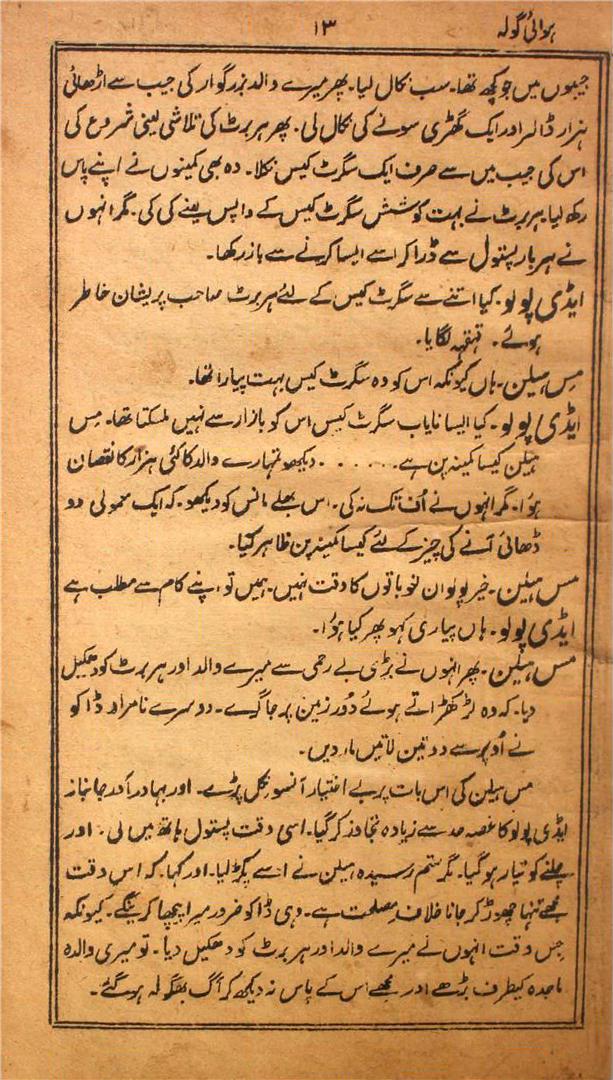 ہوائی گولہ ۱۳
جیبوں میں جو کچھ تھا۔ سب نکال لیا۔ پھر میرے والد بزرگوار کی جیب سے اڑھائی
ہزار ڈالر اور ایک گھڑی سونے کی نکال لی۔ پھر ہربرٹ کی تلاشی لینی شروع کی
اس کی جیب میں سے صرف ایک سگرٹ کیس نکلا۔ وہ بھی کمینوں نے اپنے پاس
رکھ لیا۔ ہربرٹ نے بہت کوشش سگرٹ کیس کے واپس لینے کی کی۔ مگر انہوں
نے ہر بار پستول سے ڈرا کر اسے ایسا کرنے سے باز رکھا۔
ایڈی پولو۔ کیا اتنے سے سگرٹ کیس کے لئے ہربرٹ صاحب پریشان خاطر
ہوئے۔ قہقہہ لگایا۔
مس ہیلن۔ ہاں کیونکہ اس کو وہ سگرٹ کیس بہت پیارا تھا۔
ایڈی پولو۔ کیا ایسا نایاب سگرٹ کیس اس کو بازار سے نہیں ملسکتا تھا۔ مس
ہیلن کیسا کمینہ پن ہے ۔ ۔ ۔ ۔ ۔ ۔ دیکھو تمہارے والد کا کئی ہزار کا نقصان
ہؤا۔ مگر انہوں نے اُف تک نہ کی۔ اس بھلے مانس کو دیکھو۔ کہ ایک معمولی دو
ڈھائی آنے کی چیز کے لئے کیسا کمینہ پن ظاہر کیا۔
مس ہیلن۔ خیر پولو ان لغو باتوں کا وقت نہیں۔ ہمیں تو اپنے کام سے مطلب ہے
ایڈی پولو۔ ہاں پیاری کہو پھر کیا ہؤا۔
مس ہیلن۔ پھر انہوں نے بڑی بے رحمی سے میرے والد اور ہربرٹ کو دھکیل
دیا۔ کہ وہ لڑکھڑاتے ہوئے دُور زمین پر جا گرے۔ دوسرے نامراد ڈاکو
نے اُوپر سے دو تین لاتیں ماردیں۔
مس ہیلن کی اس بات پر بے اختیار آنسو نکل پڑے۔ اور بہادر اور جانباز
ایڈی پولو کا غصہ حد سے زیادہ تجاوز کر گیا۔ اسی وقت پستول ہاتھ میں لی۔ اور
چلنے کو تیار ہو گیا۔ مگر ستم رسیدہ ہیلن نے اسے پکڑ لیا۔ اور کہا۔ کہ اس وقت
مجھے تنہا چھوڑ کر جانا خلافِ مصلحت ہے۔ وہی ڈاکو ضرور میرا پیچھا کرینگے۔ کیونکہ
جس وقت انہوں نے میرے والد اور ہربرٹ کو دھکیل دیا۔ تو میری والدہ
ماجدہ کیطرف بڑھے اور مجھے اس کے پاس نہ دیکھ کر آگ بھگولہ ہو گئے۔